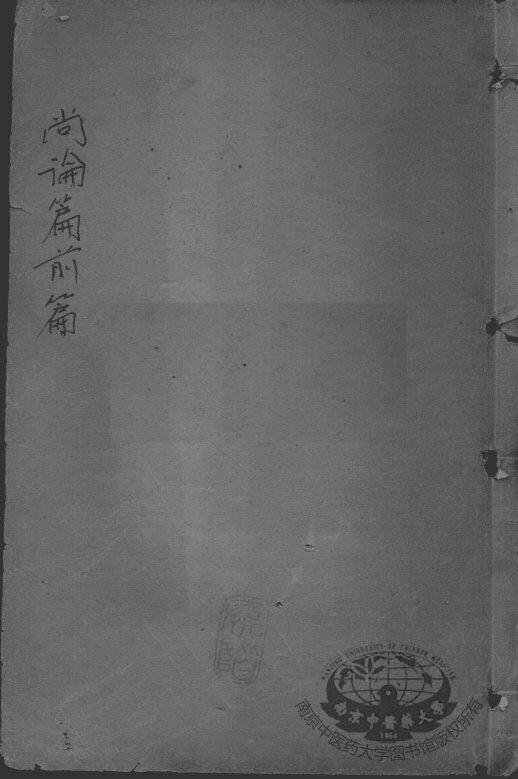 尚论篇前篇
NANJING UNIVERSITY OF CHINESE MEDICINE
南京中醫藥大學
1954
南京中医药大学图书馆版权所有